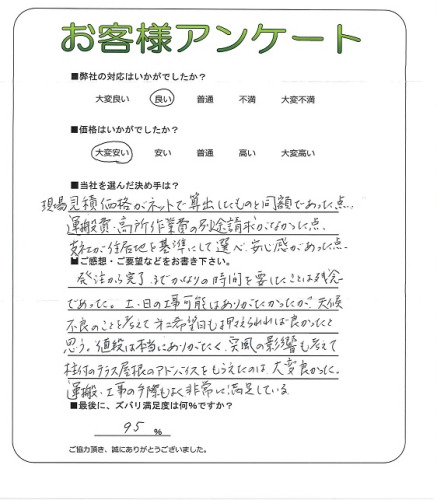 お客様アンケート
■弊社の対応はいかがでしたか？
大変良い 良い 普通 不満 大変不満
■価格はいかがでしたか？
大変安い 安い 普通 高い 大変高い
■当社を選んだ決め手は？
現場見積価格がネットで算出したものと同額であった点.
運搬費・高所作業費の別途請求がなかった点.
支社が住居地を基準にして選べ、安心感があった点.
■ご感想・ご要望などをお書き下さい。
発注から完了までかなりの時間を要したことは残念
であった。土・日の工事可能はありがたかったが、天候
不良のことを考えて、オ二希望日も押えられれば良かったと
思う。値段は本当にありがたく、突風の影響も考えて
柱付のテラス屋根のアドバイスをもらえたのは、大変良かった。
運搬・工事の手際もよく非常に満足している.
■最後に、ズバリ満足度は何％ですか？
95 ％
ご協力頂き、誠にありがとうございました。